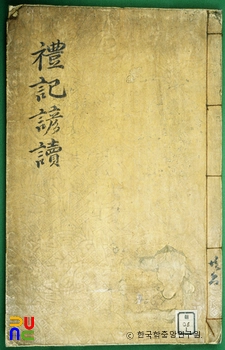 禮記諺讀
ⓒ 한국학중앙연구원